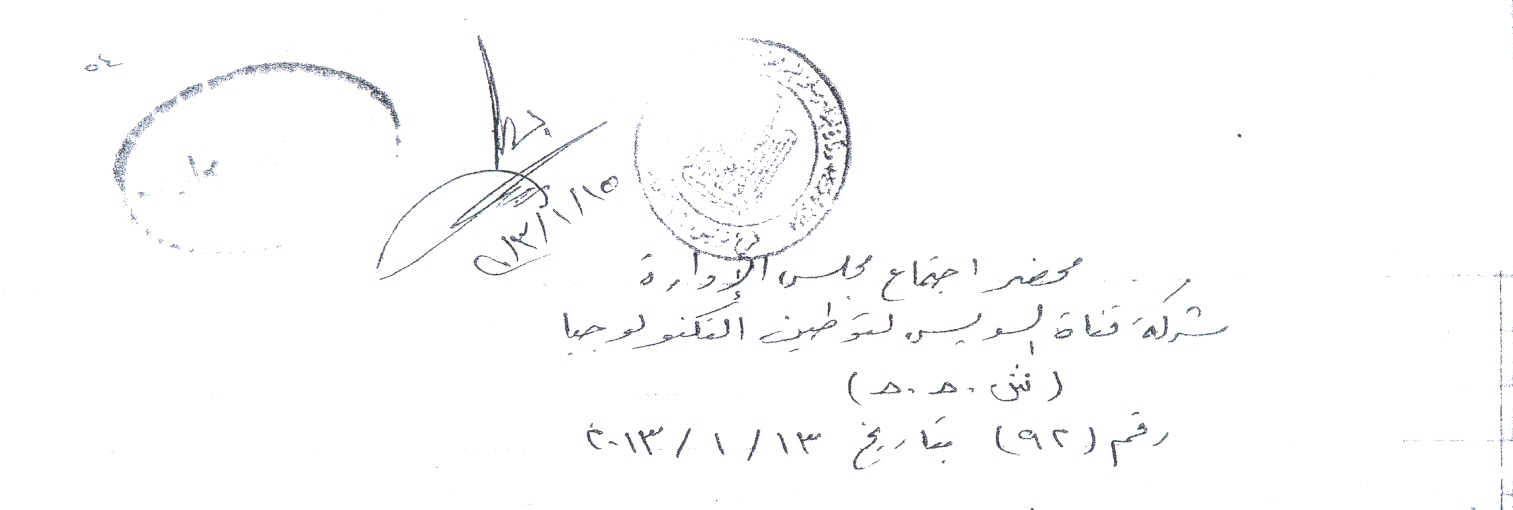 ٥٤
٢٠١٣/١/١٥
محضر اجتماع مجلس الإدارة
شركة قناة السويس لتوطين التكنولوجيا
(ش.م.م)
رقم (٩٢) بتاريخ ١٣ / ١ / ٢٠١٣